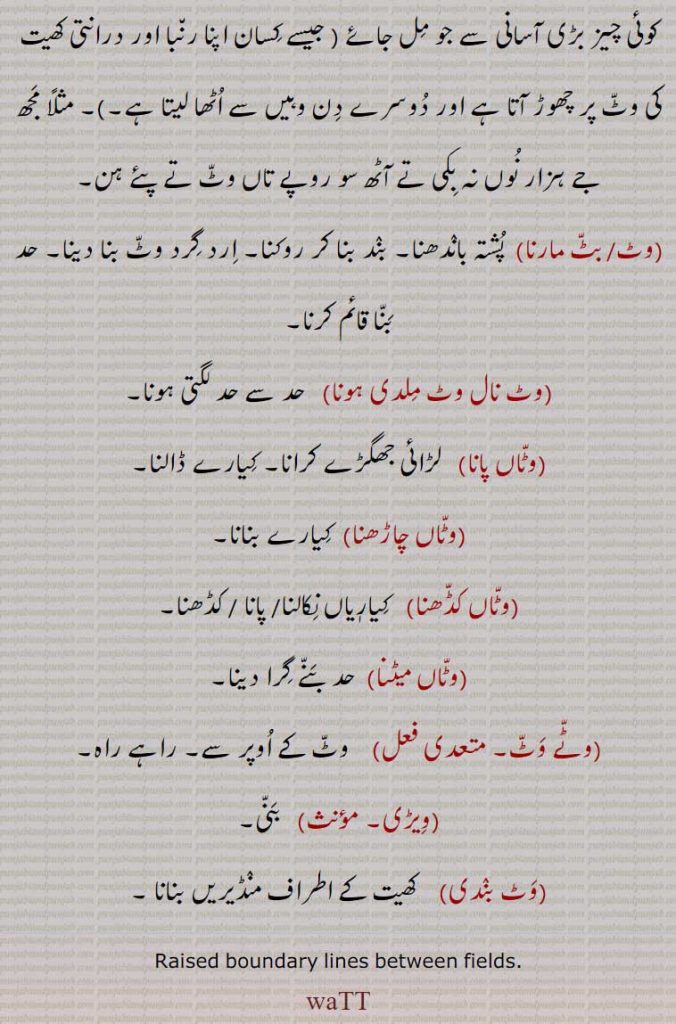 کوئی چیز بڑی آسانی سے جو مِل جائے ( جیسے کِسان اپنا رنّبا اور درانتی کھیت
کی وٹّ پر چھوڑ آتا ہے اور دُوسرے دِن وہیں سے اُٹھا لیتا ہے۔)۔ مثلاً مَجھ
جے ہزار نُوں نہ بِکی تے آٹھ سو روپے تاں وٹّ تے پئے ہن۔
(وٹ/ بٹّ مارنا) پُشتہ باندھنا۔ بند بنا کر روکنا۔ اِرد گِرد وٹّ بنا دینا۔ حد
بَنّا قائم کرنا۔
(وٹ نال وٹ مِلدی ہونا) حد سے حد لگتی ہونا۔
(وٹّاں پانا) لڑائی جھگڑے کرانا۔ کِیارے ڈالنا۔
(وٹّاں چاڑھنا) کِیارے بنانا۔
(وٹّاں کڈّھنا) کِیاریاں نِکالنا/ پانا / کڈھنا۔
(وٹّاں میٹنا) حد بَنّے گِرا دینا۔
(وٹّے وَٹّ۔ متعدی فعل) وٹّ کے اُوپر سے۔ راہے راہ۔
(وِیڑی۔ مؤنث) بَنّی۔
(وَٹ بندی) کھیت کے اطراف منڈیریں بنانا ۔
Raised boundary lines between fields.
waTT